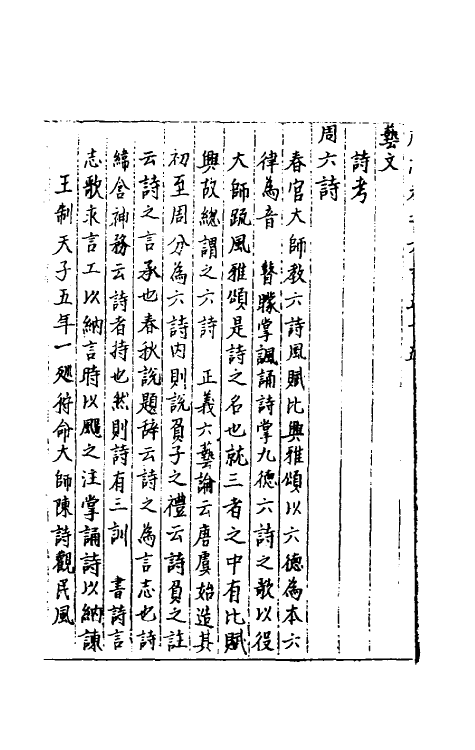 藝文
詩考
周六詩
春官大師教六詩風賦比興雅頌以六德為本六
律為音 瞽矇掌諷誦詩掌九德六詩之歌以役
大師疏風雅頌是詩之名也就三者之中有比賦
興故總謂之六詩 正義六藝論云唐虞始造其
初至周分為六詩內則說負子之禮云詩負之註
云詩之言承也春秋說題辞云詩之為言志也詩
緯含神務云詩者持也然則詩有三訓 書詩言
志歌永言工以納言時以颺之注掌誦詩以納諫
王制天子五年一廵狩命大師陳詩觀民風